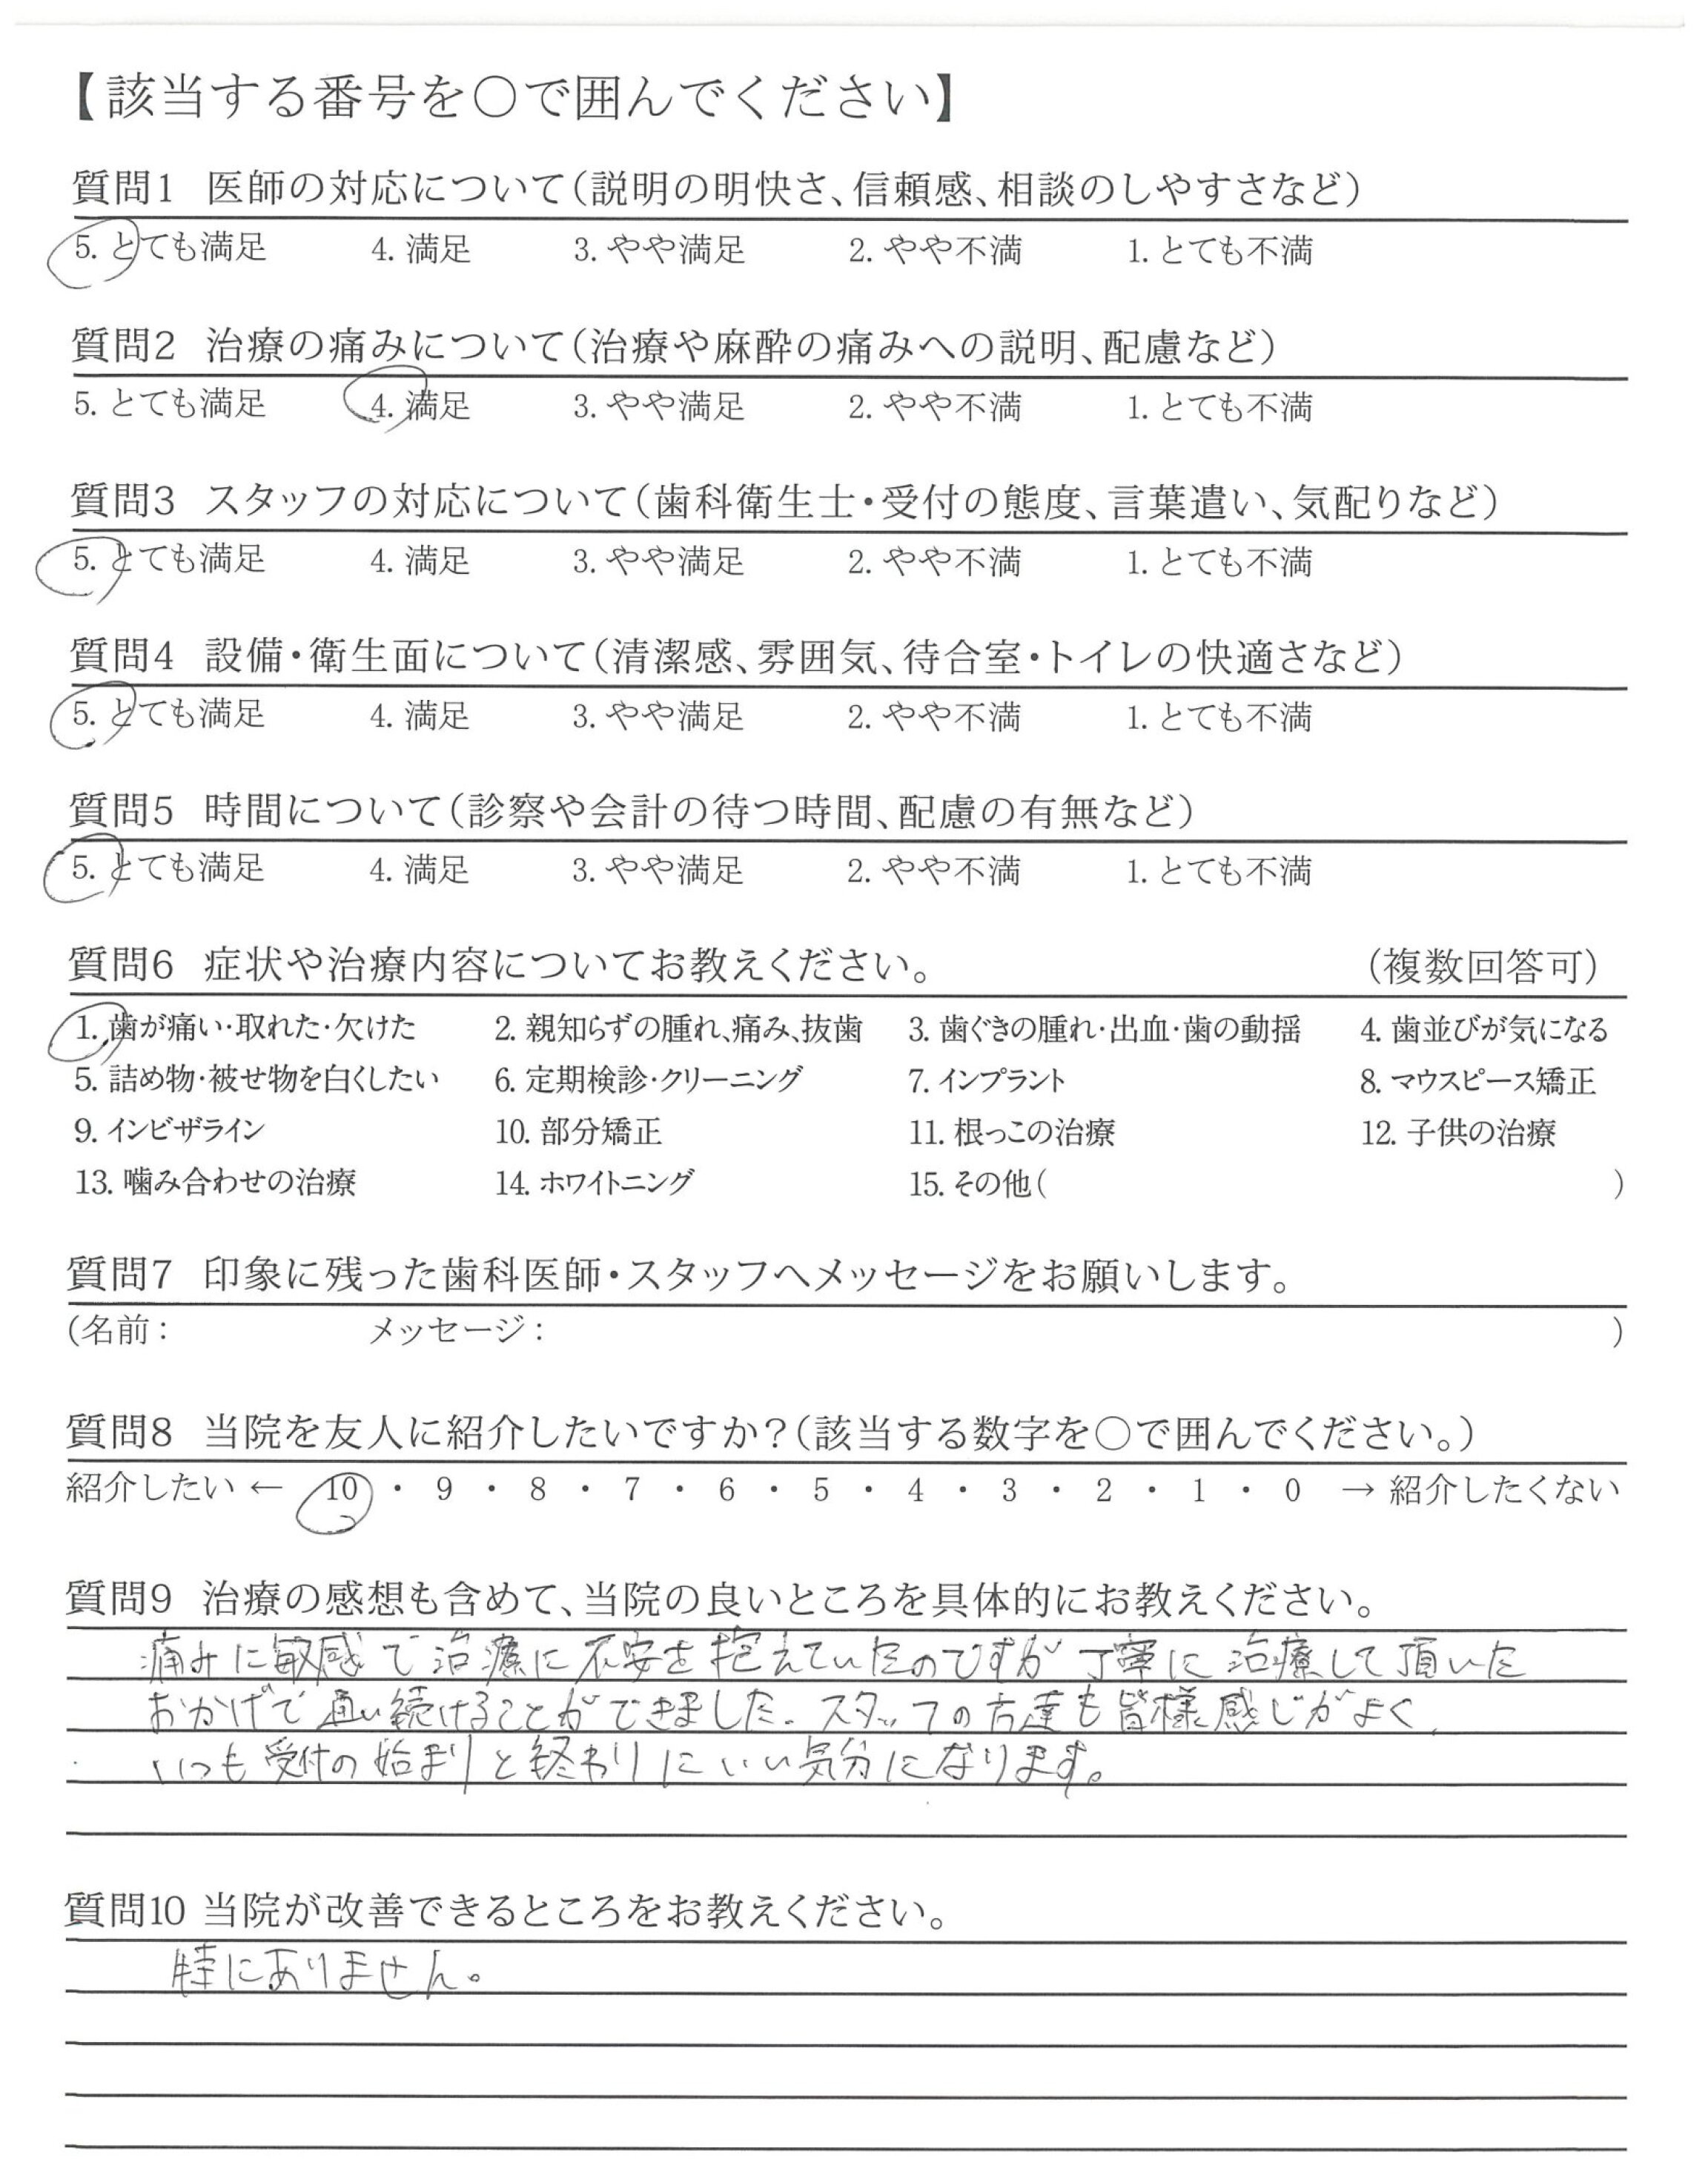 【該当する番号を○で囲んでください】
質問1 医師の対応について(説明の明快さ、信頼感、相談のしやすさなど)
5. とても満足 4. 満足 3. やや満足 2. やや不満 1. とても不満
質問2 治療の痛みについて(治療や麻酔の痛みへの説明、配慮など)
5. とても満足 4. 満足 3. やや満足 2. やや不満 1. とても不満
質問3 スタッフの対応について(歯科衛生士・受付の態度、言葉遣い、気配りなど)
5. とても満足 4. 満足 3. やや満足 2. やや不満 1. とても不満
質問4 設備・衛生面について(清潔感、雰囲気、待合室・トイレの快適さなど)
5. とても満足 4. 満足 3. やや満足 2. やや不満 1. とても不満
質問5 時間について(診察や会計の待つ時間、配慮の有無など)
5. とても満足 4. 満足 3. やや満足 2. やや不満 1. とても不満
質問6 症状や治療内容についてお教えください。 (複数回答可)
1. 歯が痛い・取れた・欠けた 2. 親知らずの腫れ、痛み、抜歯 3. 歯ぐきの腫れ・出血・歯の動揺 4. 歯並びが気になる
5. 詰め物・被せ物を白くしたい 6. 定期検診・クリーニング 7. インプラント 8. マウスピース矯正
9. インビザライン 10. 部分矯正 11. 根っこの治療 12. 子供の治療
13. 噛み合わせの治療 14. ホワイトニング 15. その他( )
質問7 印象に残った歯科医師・スタッフへメッセージをお願いします。
(名前: メッセージ: )
質問8 当院を友人に紹介したいですか?(該当する数字を○で囲んでください。)
紹介したい ← 10 ・ 9 ・ 8 ・ 7 ・ 6 ・ 5 ・ 4 ・ 3 ・ 2 ・ 1 ・ 0 → 紹介したくない
質問9 治療の感想も含めて、当院の良いところを具体的にお教えください。
痛みに敏感で治療に不安を抱えていたのですが丁寧に治療して頂いた
おかげで通い続けることができました。スタッフの方達も皆様感じがよく、
いつも受付の始まりと終わりにいい気分になります。
質問10 当院が改善できるところをお教えください。
特にありません。